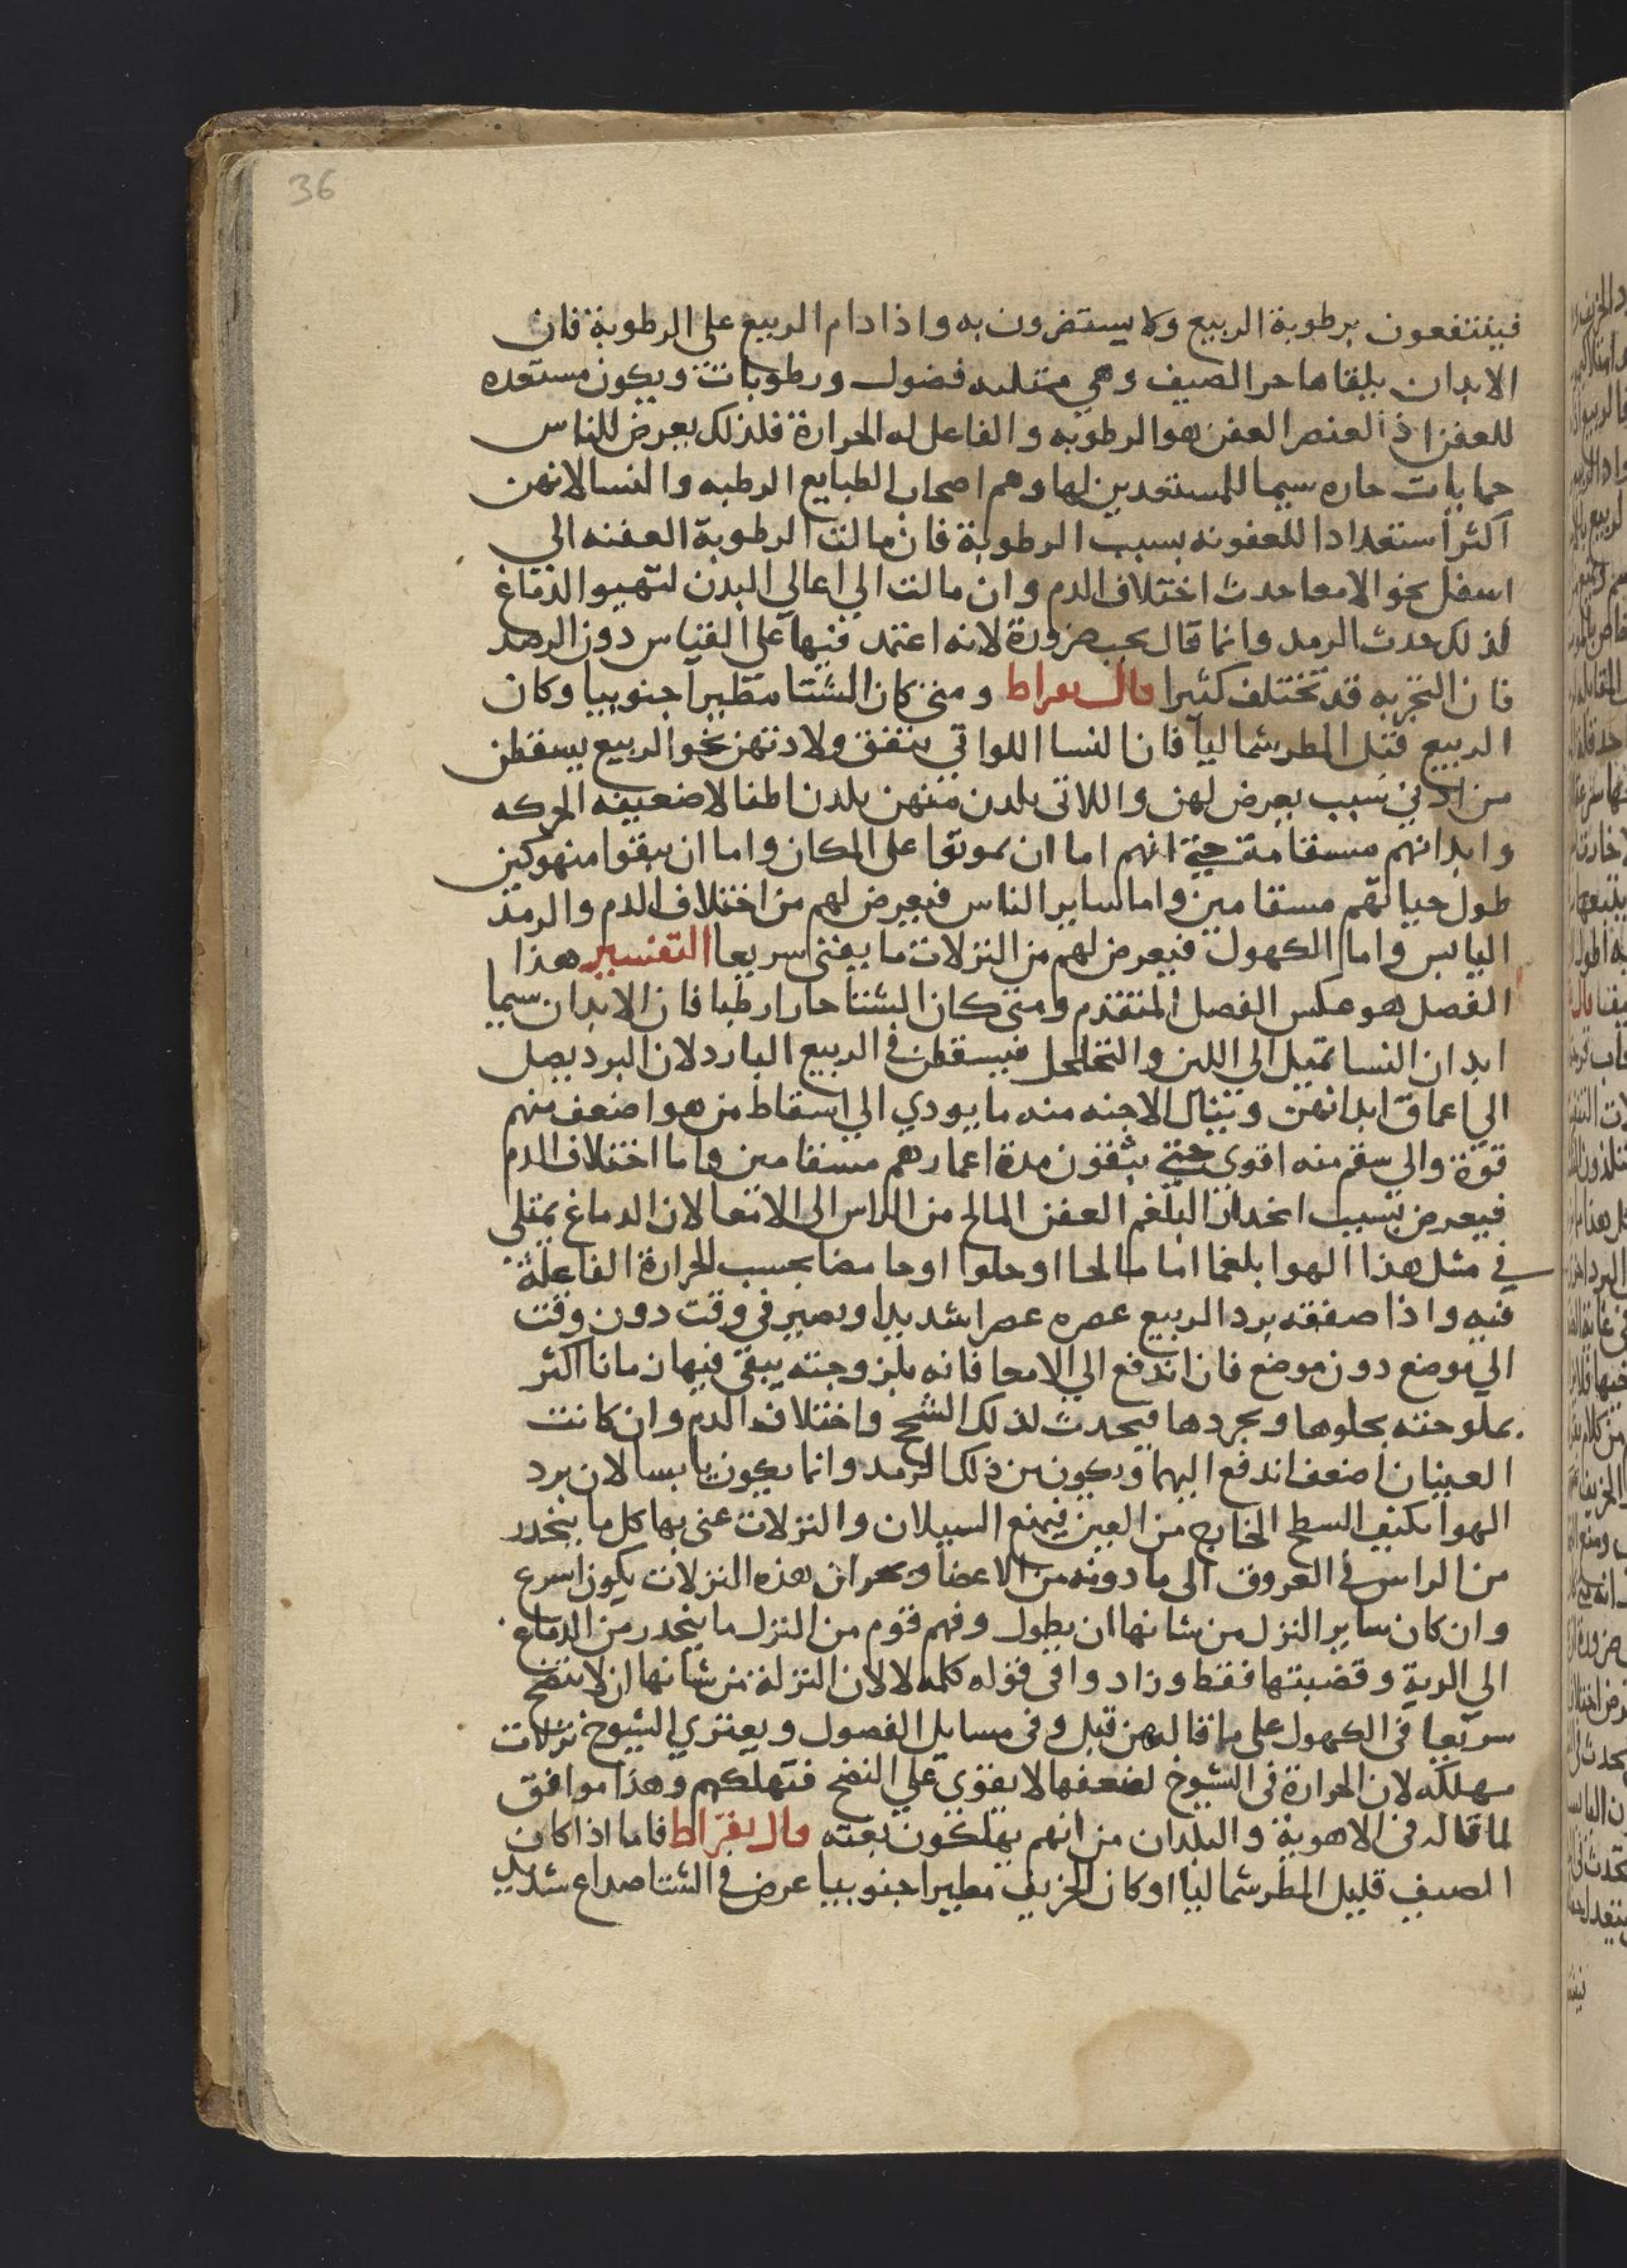 36
فينتفعون برطوبة الربيع ولا يستضرون به واذا دام الربيع على الرطوبة فان
الابدان يلقاها حر الصيف وهي ممتليه فضول ورطوبات ويكون مستعده
للعفن اذ العنصر العفن هو الرطوبه والفاعل له الحرارة فلذلك يعرض للناس
حمايات حاره سيما للمستعدين لها وهم اصحاب الطبايع الرطبه والنسا لانهن
اكثر استعدادا للعفونه بسبب الرطوبة فان مالت الرطوبة العفنه الي
اسفل نحو الامعا حدث اختلاف الدم وان مالت الي اعالي البدن لتهيوا الدماغ
لذلك حدث الرمد وانما قال يجب ضرورة لانه اعتمد فيها على القياس دون الرصد
فان التجربه قد تختلف كثيرا قال بقراط ومتى كان الشتا مطيرا جنوبيا وكان
الربيع قليل المطر شماليا فان النسا اللواتي يتفق ولادتهن نحو الربيع يسقطن
من ادني سبب يعرض لهن واللاتى يلدن منهن يلدن اطفالا ضعيفه الحركه
وابدانهم مسقامة حتي انهم اما ان يموتوا على المكان واما ان يبقوا منهوكين
طول حياتهم مسقامين واما ساير الناس فيعرض لهم من اختلاف الدم والرمد
اليابس واما الكهول فيعرض لهم من النزلات ما يفنى سريعا التفسير هذا
الفصل هو عكس الفصل المتقدم ومتى كان الشتا حارا رطبا فان الابدان سيما
ابدان النسا تميل الى اللين والتخلخل فيسقطن في الربيع البارد لان البرد يصل
الي اعماق ابدانهن وينال الاجنه منه ما يودي الي اسقاط من هو اضعف منهم
قوة والى سقم منه اقوي حتي يبقون مدة اعمارهم مسقامين واما اختلاف الدم
فيعرض بسبب انحدار البلغم العفن المالح من الراس الى الامعا لان الدماغ يمتلي
في مثل هذا الهوا بلغما اما مالحا او حلوا او حامضا بحسب الحرارة الفاعلة
فيه واذا صفقه برد الربيع عصره عصرا شديدا ويصير في وقت دون وقت
الي موضع دون موضع فان اندفع الي الامعا فانه بلزوجته يبقى فيها زمانا اكثر
بملوحته يجلوها ويجردها فيحدث لذلك السحج واختلاف الدم وان كانت
العينان اضعف اندفع اليهما ويكون من ذلك الرمد وانما يكون يابسا لان برد
الهوا يكثف السطح الخارج من العين فيمنع السيلان والنزلات عنى بها كل ما ينحدر
من الراس في العروق الى ما دونه من الاعضا وبحران هذه النزلات يكون اسرع
وان كان ساير النزل من شانها ان يطول وفهم قوم من النزل ما ينحدر من الدماغ
الى الرية وقصبتها فقط وزادوا في قوله كلمه لا لان النزلة من شانها ان لا تنضج
سريعا في الكهول على ما قاله من قبل وفى مسايل الفصول ويعتري الشيوخ نزلات
مهلكه لان الحرارة فى الشيوخ لضعفها لا يقوى علي النضج فتهلكهم وهذا موافق
لما قاله في الاهوية والبلدان من انهم يهلكون بغته قال بقراط فاما اذا كان
الصيف قليل المطر شماليا او كان الخريف مطيرا جنوبيا عرض في الشتا صداع شديد